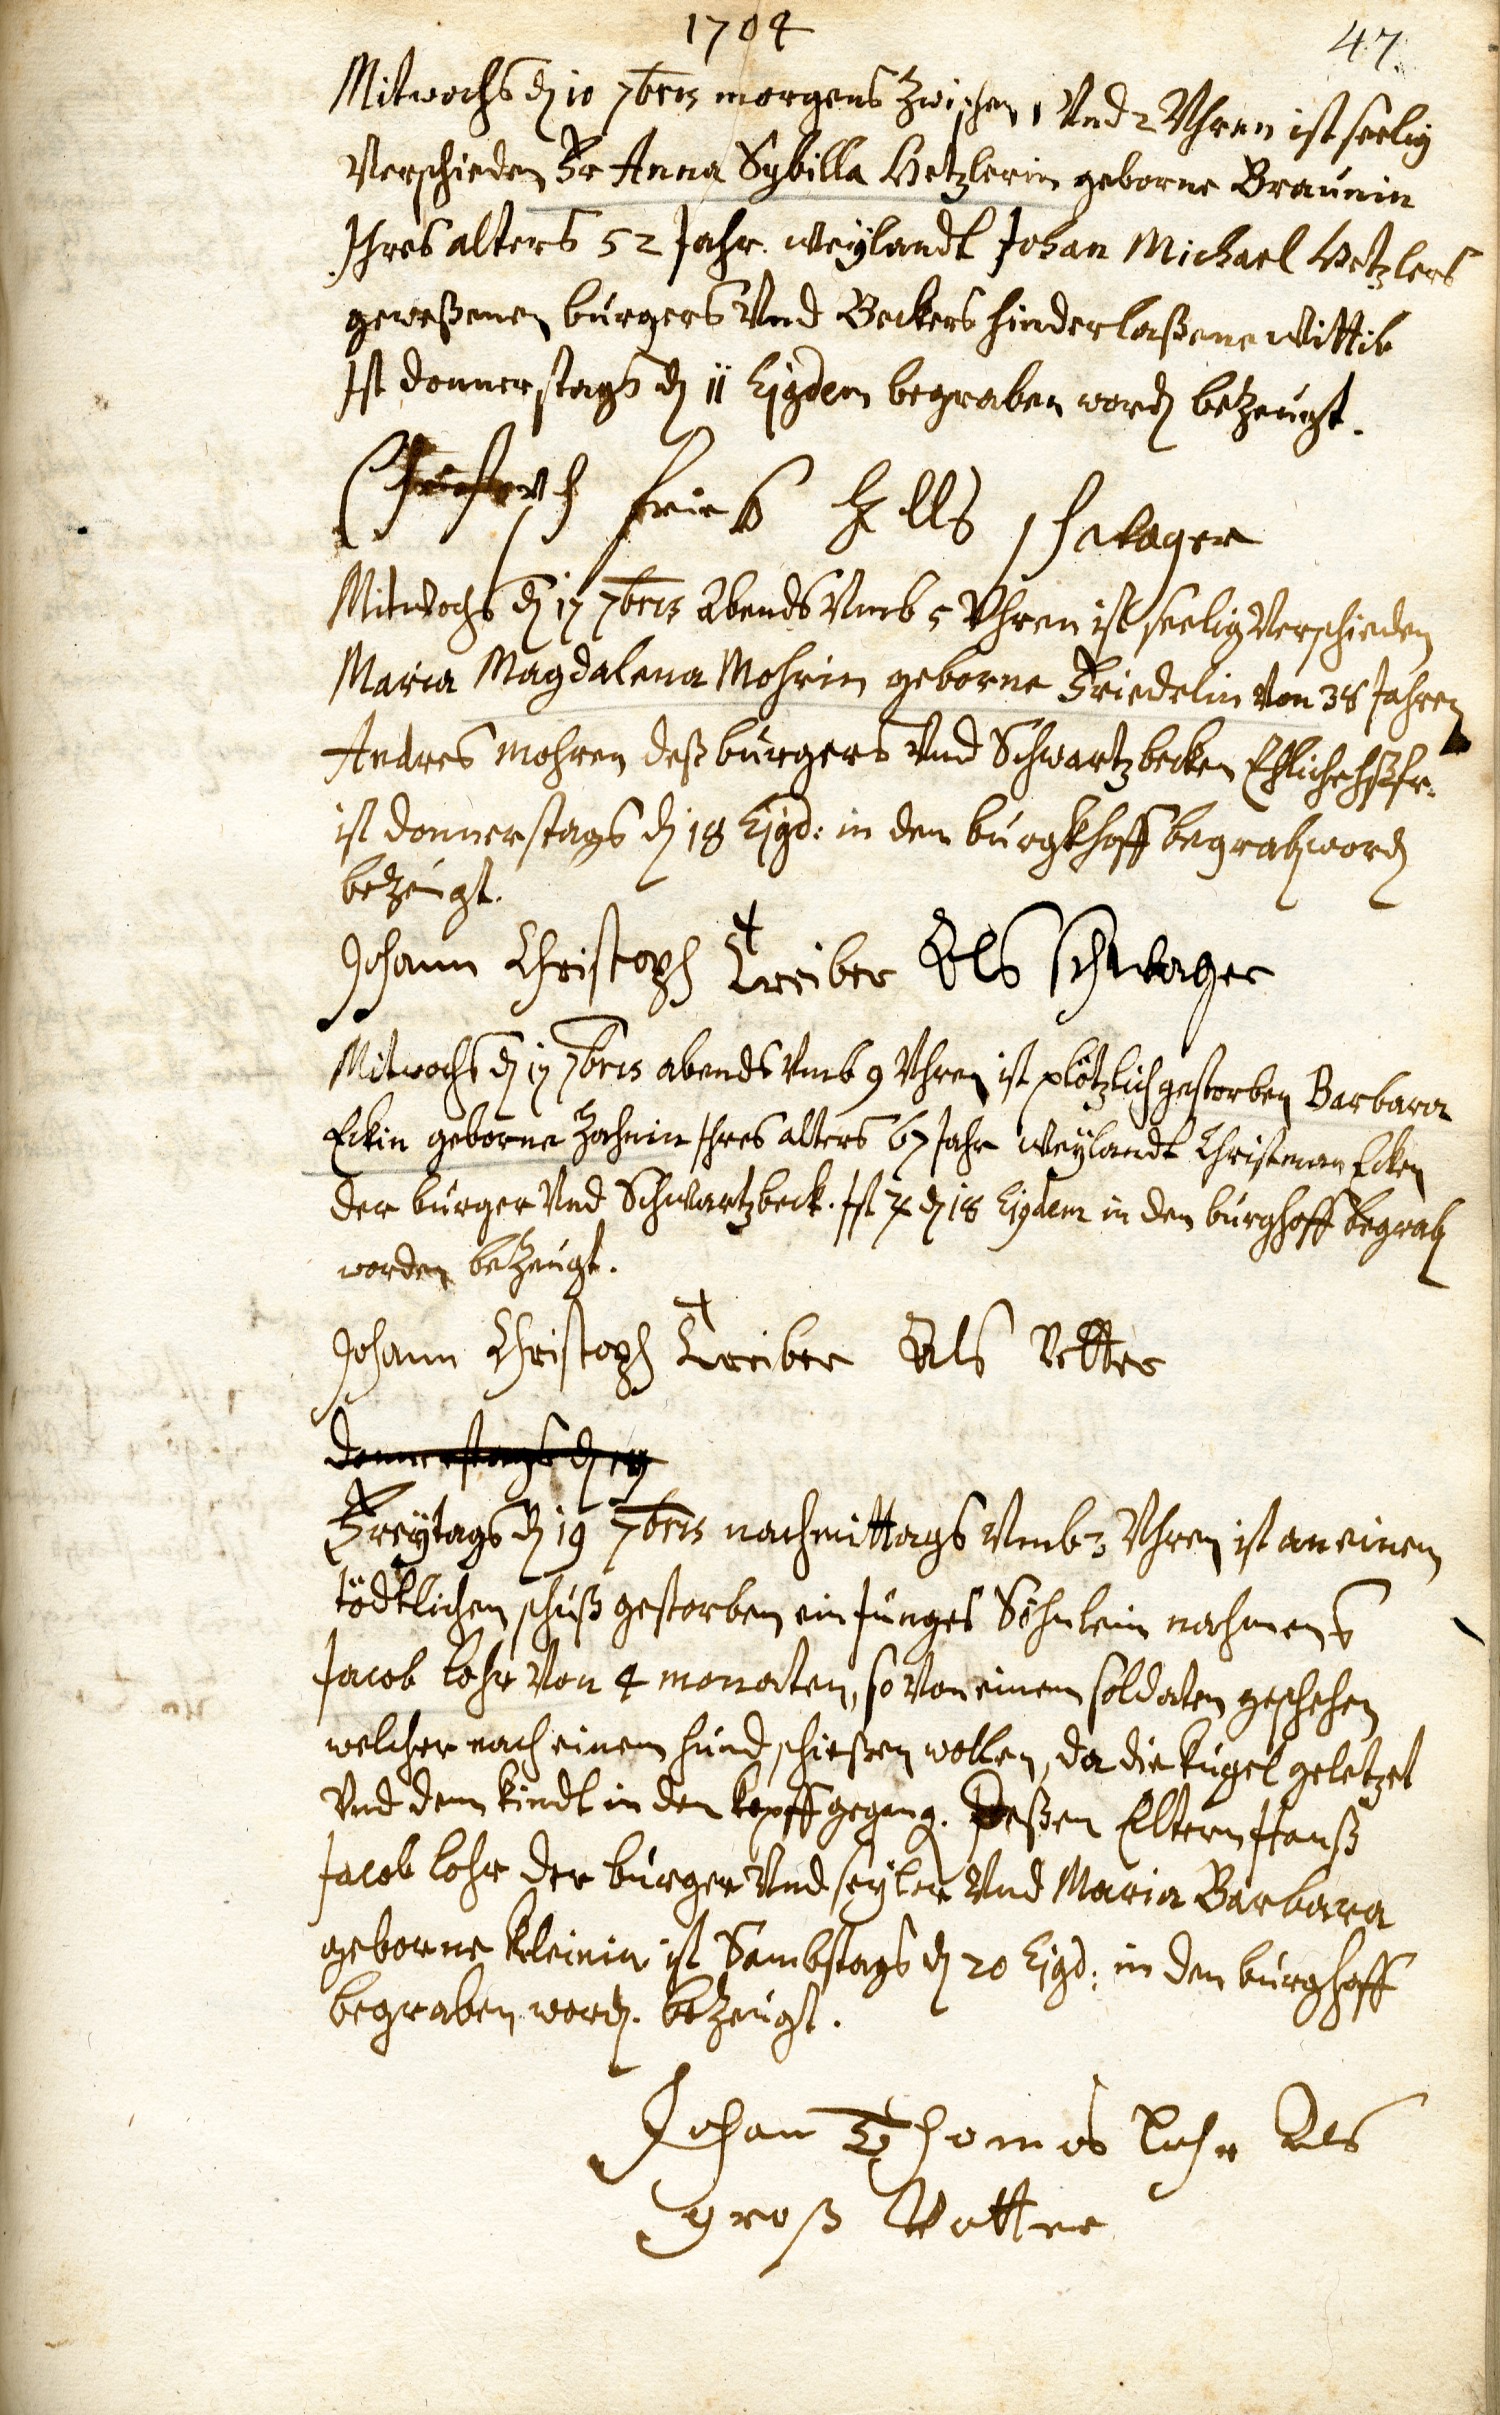 1704
47
Mitwochs dẽ 10 7bris morgens zwischen 1 Vnd 2 Vhren ist seelig
Verschieden Fr Anna Sybilla Hetzlerin geborne Braunin
Ihres alters 52 Jahr. weylandt Johan Michael Hetzlers
geweßenen burgers Vnd Beckers hinderlaßene Wittib
Ist donnerstags dẽ 11 Ejgdem begraben wordẽ betzeugt.
frieß schwager
Mitwochs dẽ 17 7bris Abends Vmb 5 Vhren ist seelig Verschieden
Maria Magdalena Mohrin geborne Friedelin Von 38 Jahren
Andres Mohren deß burgers Vnd Schwartzbecken Ehlich
ist donnerstags dẽ 18 Ejgd: in dem burgkhoff begrabẽ wordẽ
bezeugt.
Johann Christoph Treiber Als schwager
Mitwochs dẽ 17 7bris abends Vmb 9 Vhren ist plötzlich gestorben Barbara
Eckin geborne Zahnin Ihres alters 67 Jahr weylandt Christman Ecken
der burger Vnd Schwartzbeck. Ist 4 dẽ 18 Ejgdem in den burghoff begrabẽ
worden betzeugt.
Johann Christoph Treiber Als Vetter
donnerstags dẽ 19
Freytags dẽ 19 7bris nachmittags Vmb 3 Vhren ist an einem
tödtlichen schuß gestorben ein Junges Söhnlein nahmens
Jacob Lohr Von 4 monaten, so Von einem soldaten geschehen
welcher nach einem hund schießen wollen, da die kugel geletzet
Vnd dem kindt in den kopff gegang. Deßen Eltern Hanß
Jacob Lohr der burger Vnd seyler Vnd Maria Barbara
geborne Kleinin ist Sambstags dẽ 20 Ejgd: in den burghoff
begraben wordẽ. betzeugt.
Johan Thomas Lohr Als
groß Vatter